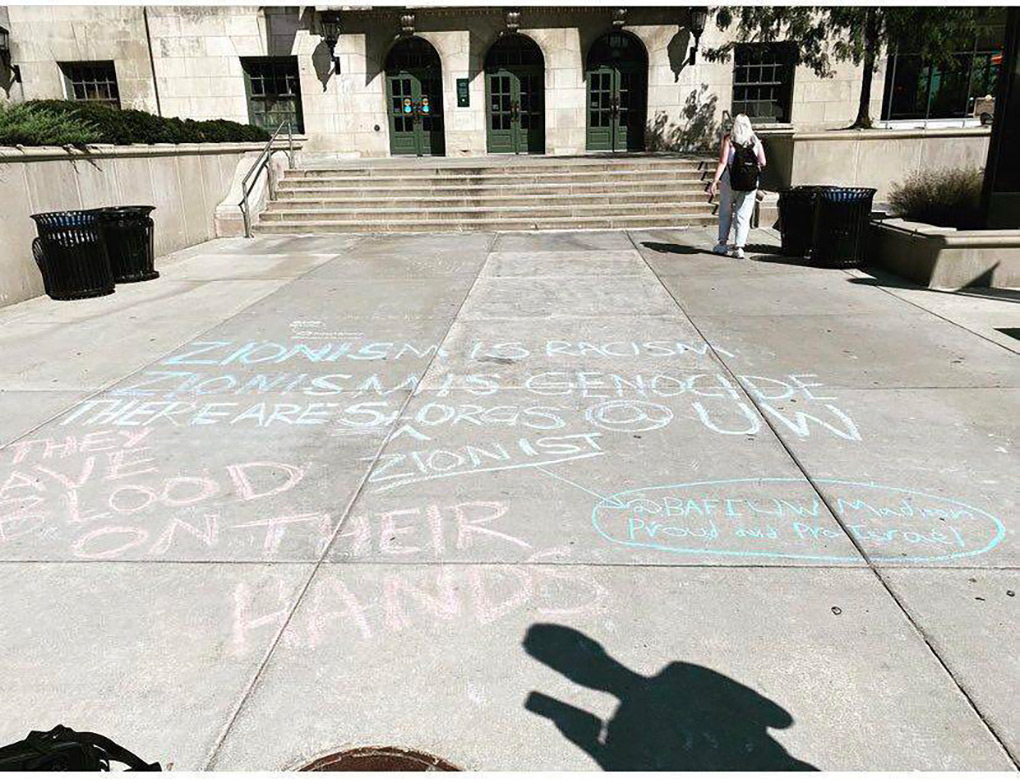 ZIONISM IS RACISM
ZIONISM IS GENOCIDE
THERE ARE 5 ORGS @ UW
ZIONIST
THEY
BLOOD
ON THEIR
HANDS
Madison
Proud and Pro Israel